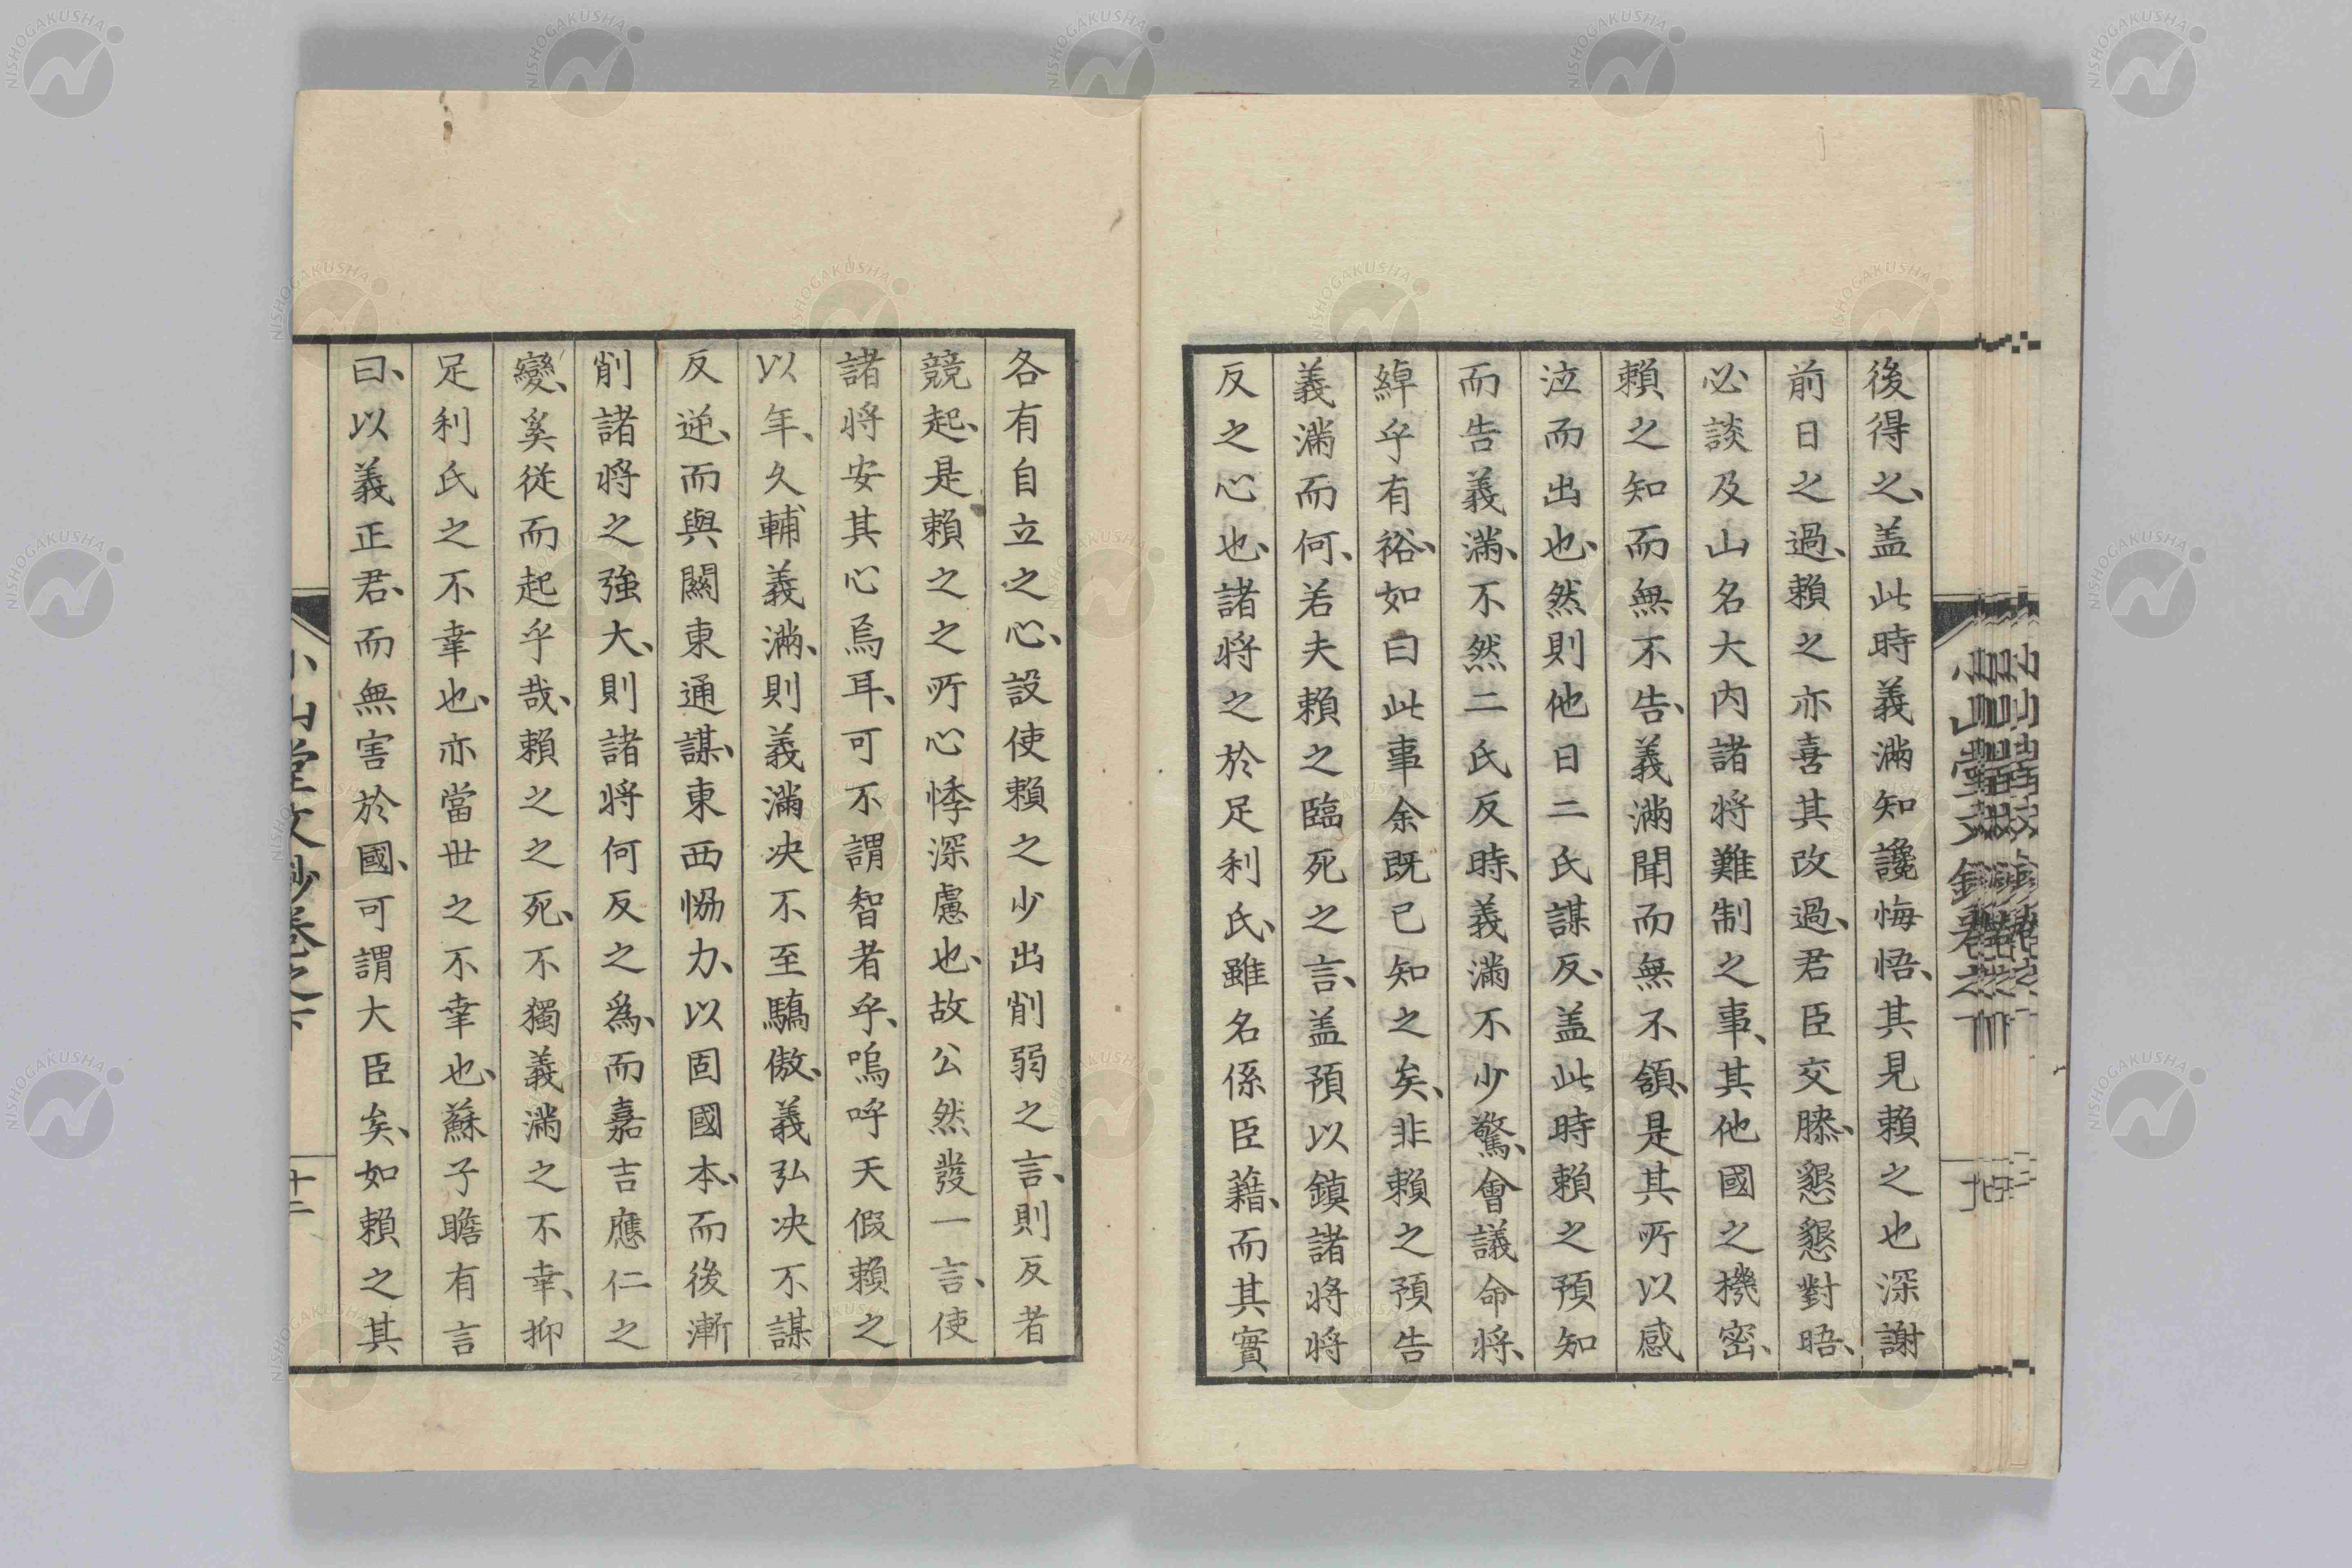 後得之、盖此時義滿知讒悔悟、其見賴之也深謝
前日之過、賴之亦喜其改過、君臣交膝、懇懇對晤、
必談及山名大内諸将難制之事、其他國之機密、
賴之知而無不告、義滿聞而無不領、是其所以感
泣而出也、然則他日二氏謀反、盖此時賴之預知
而告義滿、不然二氏反時、義滿不少驚、會議命将、
綽乎有裕、如曰此事余既已知之矣、非賴之預告
義滿而何、若夫賴之臨死之言、盖預以鎮諸将将
反之心也、諸将之於足利氏、雖名係臣藉、而其實
各有自立之心、設使賴之少出削弱之言、則反者
競起、是賴之之所心悸深慮也、故公然發一言、使
諸将安其心焉耳、可不謂智者乎、嗚呼天假賴之
以年、久輔義滿、則義滿决不至驕傲、義弘决不謀
反逆、而與關東通謀、東西恊力、以固國本、而後漸
削諸将之強大、則諸将何反之爲、而嘉吉應仁之
變、奚從而起乎哉、賴之之死、不獨義滿之不幸、抑
足利氏之不幸也、亦當世之不幸也、蘇子瞻有言
曰、以義正君、而無害於國、可謂大臣矣、如賴之其
小山堂文鈔卷之下
十二
NISHOGAKUSHA